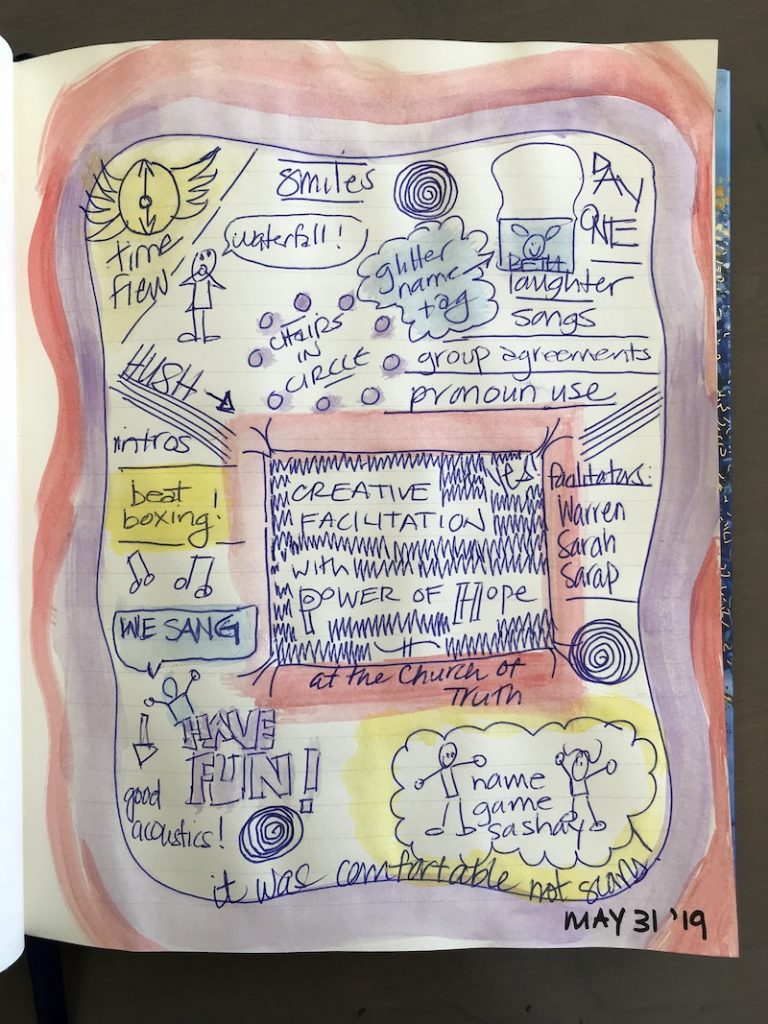 time
flew
smiles
waterfall!
glitter
name
tag
BETH
DAY
ONE
laughter
songs
group agreements
pronoun use
CHAIRS
IN
CIRCLE
HUSH
intros
beat
boxing!
WE SANG
HAVE
FUN!
good
acoustics!
yes
CREATIVE
FACILITATION
with
POWER OF HOPE
at the Church of
Truth
facilitators:
Warren
Sarah
Sarap
name
game
sashay
it was comfortable not scary.
MAY 31 '19